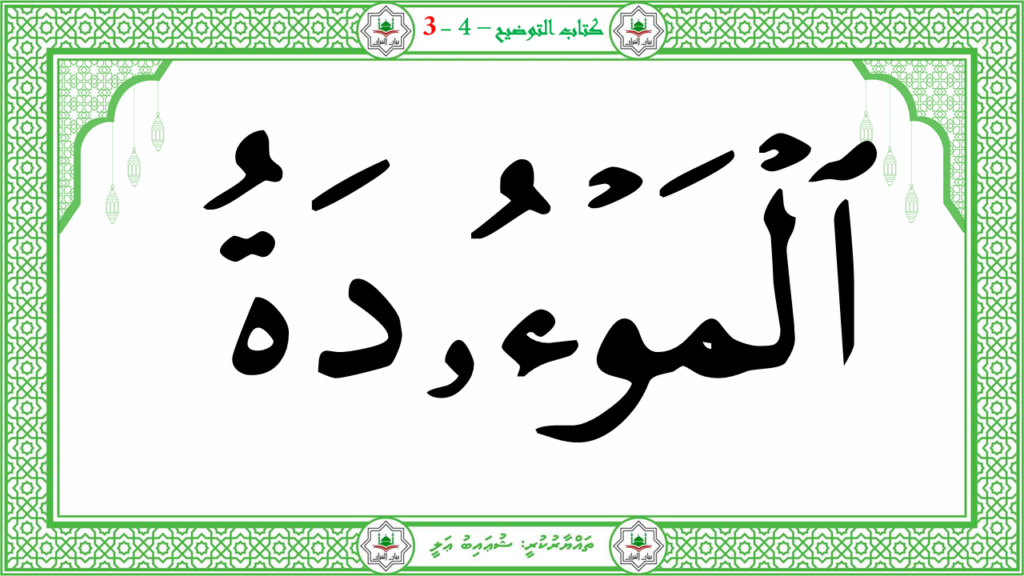 كتاب التوضيح – 4 - 3
ٱلْمَوْءُۥدَةُ
ތައްޔާރުކުރީ: ޝުޢައިބު ޢަލީ